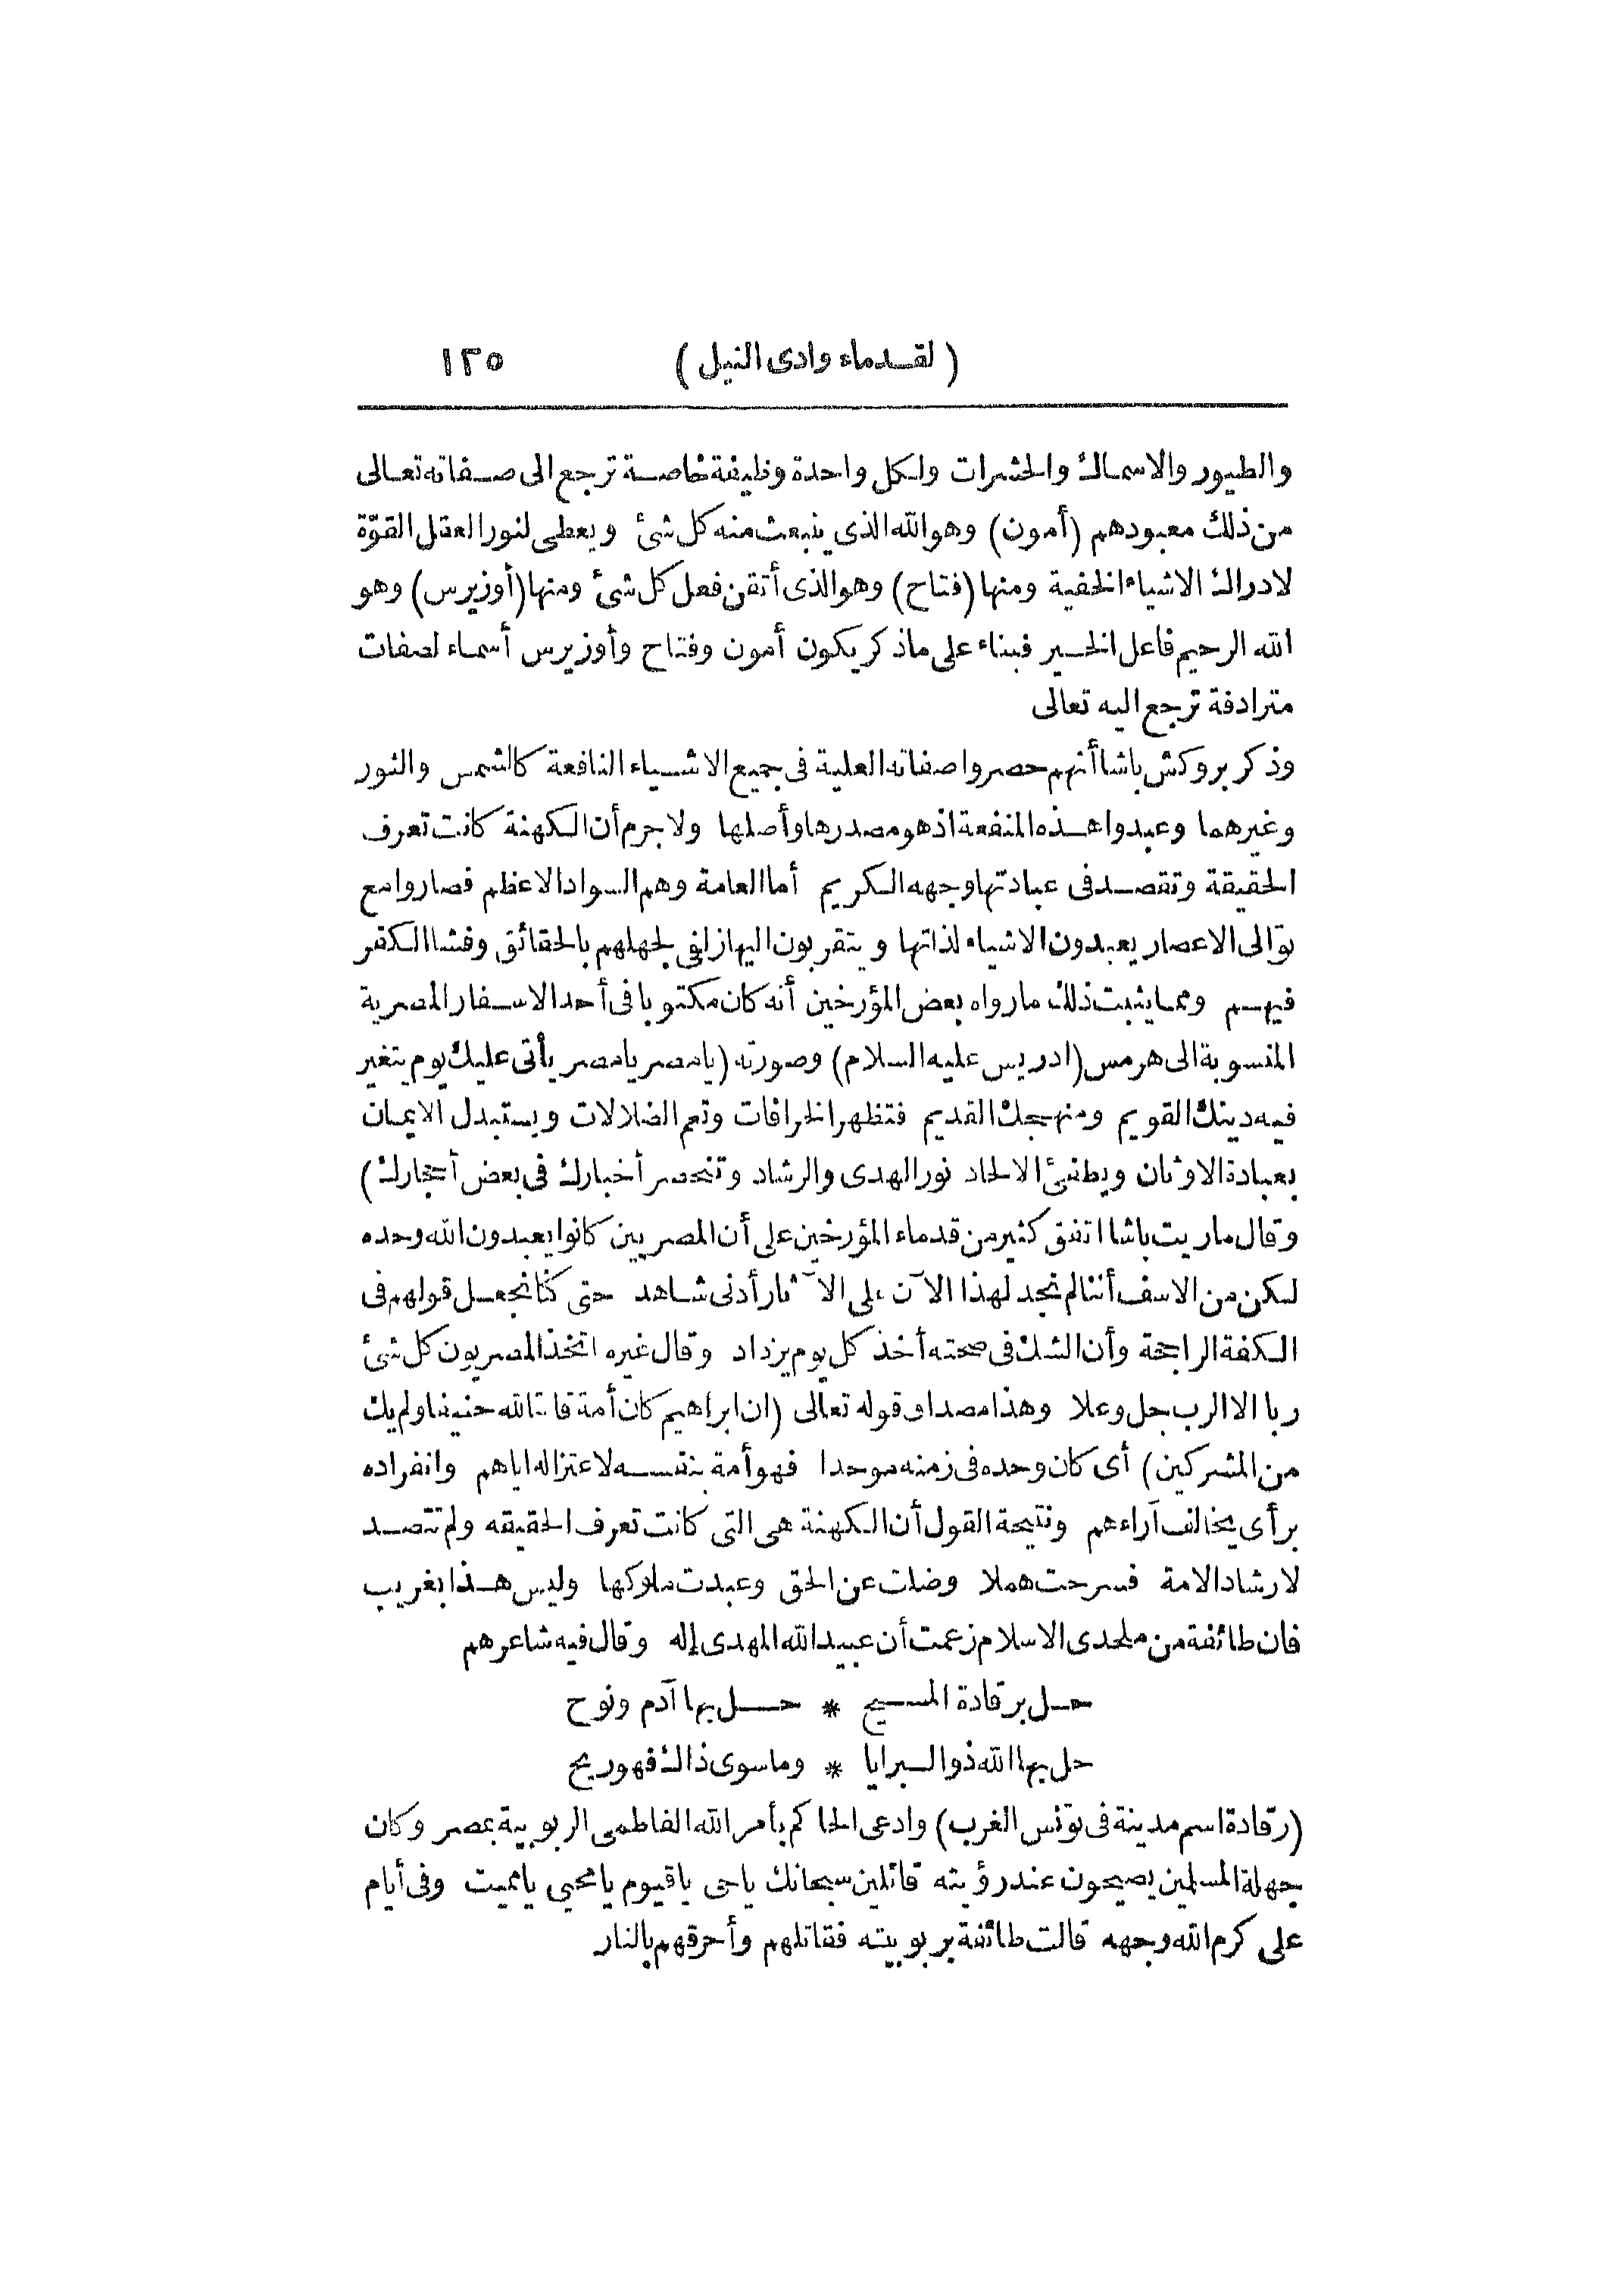 ( لقدماء وادى النيل ) ١٢٥
والطيور والاسماك والحشرات ولكل واحدة وظيفة خاصة ترجع الى صفاته تعالى
من ذلك معبودهم (أمون) وهو الله الذى ينبعث منه كل شئ ويعطى لنور العقل القوّة
لادراك الاشياء الخفية ومنها (فتاح) وهو الذى أتقن فعل كل شئ ومنها (أوزيرس) وهو
الله الرحيم فاعل الخير فبناء على ماذكر يكون أمون وفتاح وأوزيرس أسماء لصفات
مترادفة ترجع اليه تعالى
وذكر بروكش باشا أنهم حصروا صفاته العلية فى جميع الاشياء النافعة كالشمس والنور
وغيرهما وعبدوا هذه المنفعة اذ هو مصدرها وأصلها ولاجرم أن الكهنة كانت تعرف
الحقيقة وتقصد فى عبادتها وجهه الكريم أما العامة وهم السواد الاعظم فصاروا مع
توالى الاعصار يعبدون الاشياء لذاتها ويتقربون اليها زلفى لجهلهم بالحقائق وفشا الكفر
فيهم ومما يثبت ذلك مارواه بعض المؤرخين أنه كان مكتوبا فى أحد الاسفار المصرية
المنسوبة الى هرمس (ادريس عليه السلام) وصورته (يامصر يامصر يأتى عليك يوم يتغير
فيه دينك القويم ومنهجك القديم فتظهر الخرافات وتعم الضلالات ويستبدل الايمان
بعبادة الاوثان ويطفئ الالحاد نور الهدى والرشاد وتنحصر أخبارك فى بعض أحجارك)
وقال ماريت باشا اتفق كثير من قدماء المؤرخين على أن المصريين كانوا يعبدون الله وحده
لكن من الاسف أننا لم نجد لهذا الآن على الآثار أدنى شاهد حتى كنا نجعل قولهم فى
الكفة الراجحة وأن الشك فى صحته أخذ كل يوم يزداد وقال غيره اتخذ المصريون كل شئ
ربا الا الرب جل وعلا وهذا مصداق قوله تعالى (ان ابراهيم كان أمة قانتا لله حنيفا ولم يك
من المشركين) أى كان وحده فى زمنه موحدا فهو أمة بنفسه لاعتزاله اياهم وانفراده
برأى يخالف آراءهم ونتيجة القول أن الكهنة هى التى كانت تعرف الحقيقه ولم تتصد
لارشاد الامة فسرحت هملا وضلت عن الحق وعبدت ملوكها وليس هذا بغريب
فان طائفة من ملحدى الاسلام زعمت أن عبيد الله المهدى إله وقال فيه شاعرهم
حل برقادة المسيح * حل بها آدم ونوح
حل بها الله ذو البرايا * وماسوى ذاك فهو ريح
(رقادة اسم مدينة فى تونس الغرب) وادعى الحاكم بأمر الله الفاطمى الربوبية بمصر وكان
جهلة المسلمين يصيحون عند رؤيته قائلين سبحانك ياحى ياقيوم يامحيى يامميت وفى أيام
على كرم الله وجهه قالت طائفة بربوبيته فقاتلهم وأحرقهم بالنار